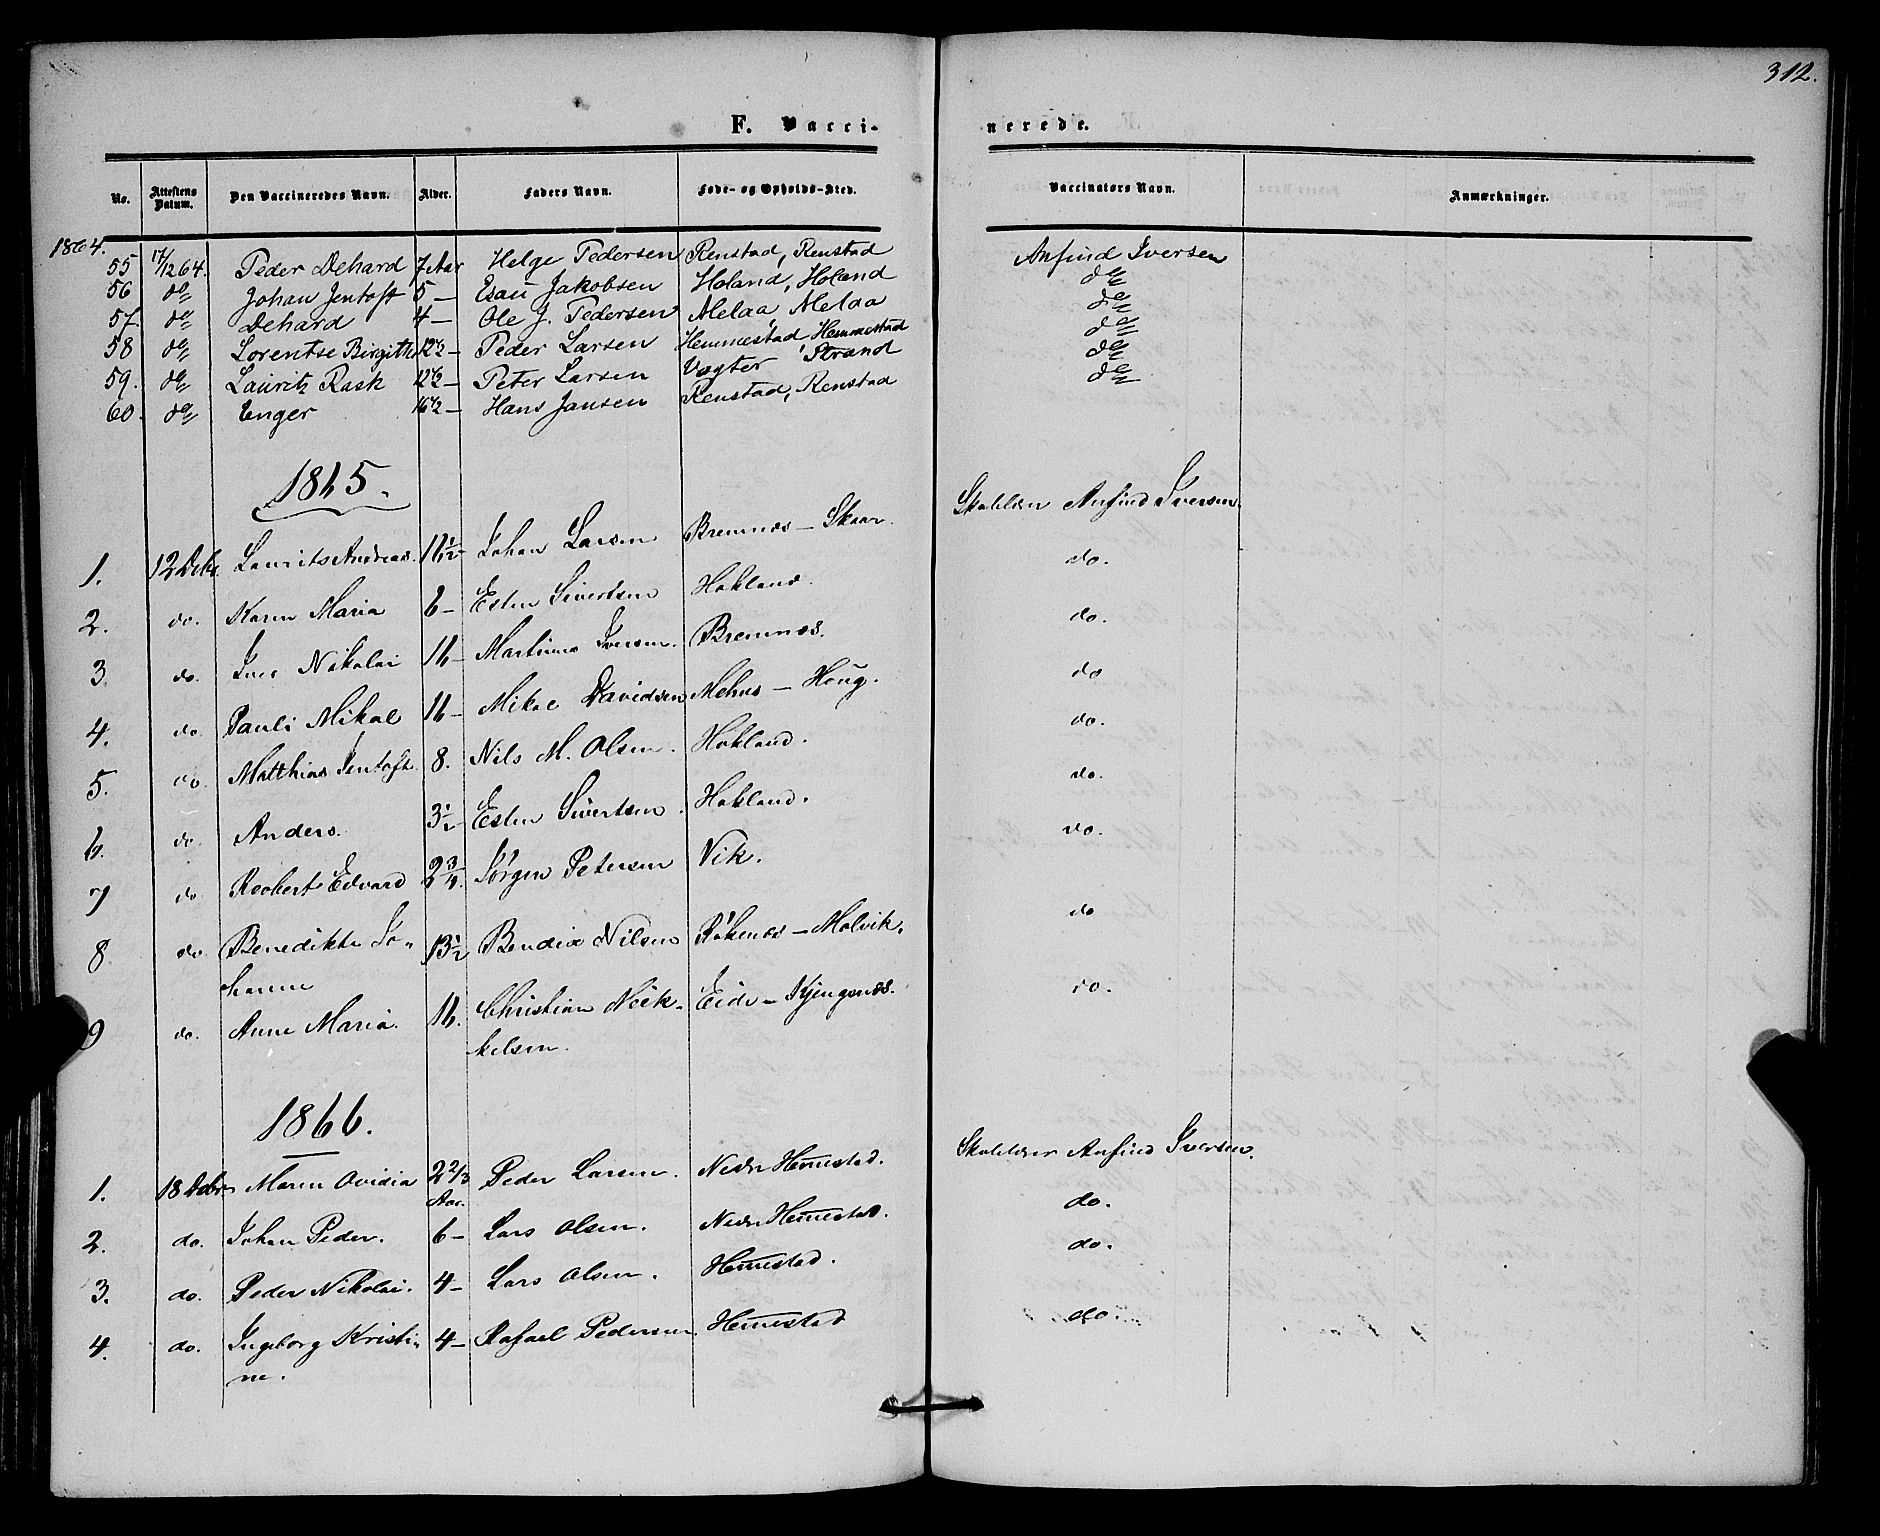 312.
F. Vacci- nerede.
No. Attestens Datum. Den Vaccineredes Navn. Alder. Faders Navn. Føde- og Opholds-Sted. Vaccinators Navn. Anmærkninger.
1864.
55 17/12 64. Peder Dehard 7 Aar Helge Pedersen Renstad, Renstad Anfind Iversen
56 do Johan Jentoft 5 — Esau Jakobsen Holand, Holand do
57. do Dehard 4 — Ole J. Pedersen Melaa, Melaa do
58 do Lorentse Birgithe 12 1/2 — Peder Larsen Hemmestad Hemmestad do
59. do Lauritz Rask 12 1/2 — Peter Larsen Vogter Strand do
60. do Enger Hans Jansen Renstad, Renstad do
1865.
1. 12 Debr. Laurits Andreas. 11 1/2 — Johan Larsen Bremnæs — Skaar. Skoleldrer Anfind Iversen.
2. do. Karen Maria 6 — Esten Sivertsen Hokland. do.
3. do. Iver Nikolai 11 — Martinus Iversen. Bremnæs. do.
4. do. Pauli Mikal 11 — Mikal Davidsen Mehus — Houg. do
5. do Matthias Jentoft. 8. Nils M. Olsen. Hokland. do.
6. do Anders. 3 1/2 Esten Sivertsen. Hokland. do.
7 do Robert Edvard 2 3/4. Jørgen Petersen Vik. do.
8 do Benedikte Jo- 13 1/2 Bendix Nilsen Røkenæs — Molvik. do
hanne
9 do. Anne Maria. 11. Christian Nick- Eide — Kjengsnæs. do.
kelsen.
1866.
1. 18 Debr Maren Ovidia 2 2/3 Peder Larsen. Nedr Hemestad. Skoleldrer Anfind Iversen.
Aar.
2. do. Johan Peder. 6 — Lars Olsen. Nedr Hemestad. do.
3. do. Peder Nikolai. 4 — Lars Olsen. Hemestad. do.
4. do. Ingeborg Kristi- 4 — Rafael Pedersen Hemestad do.
ne.